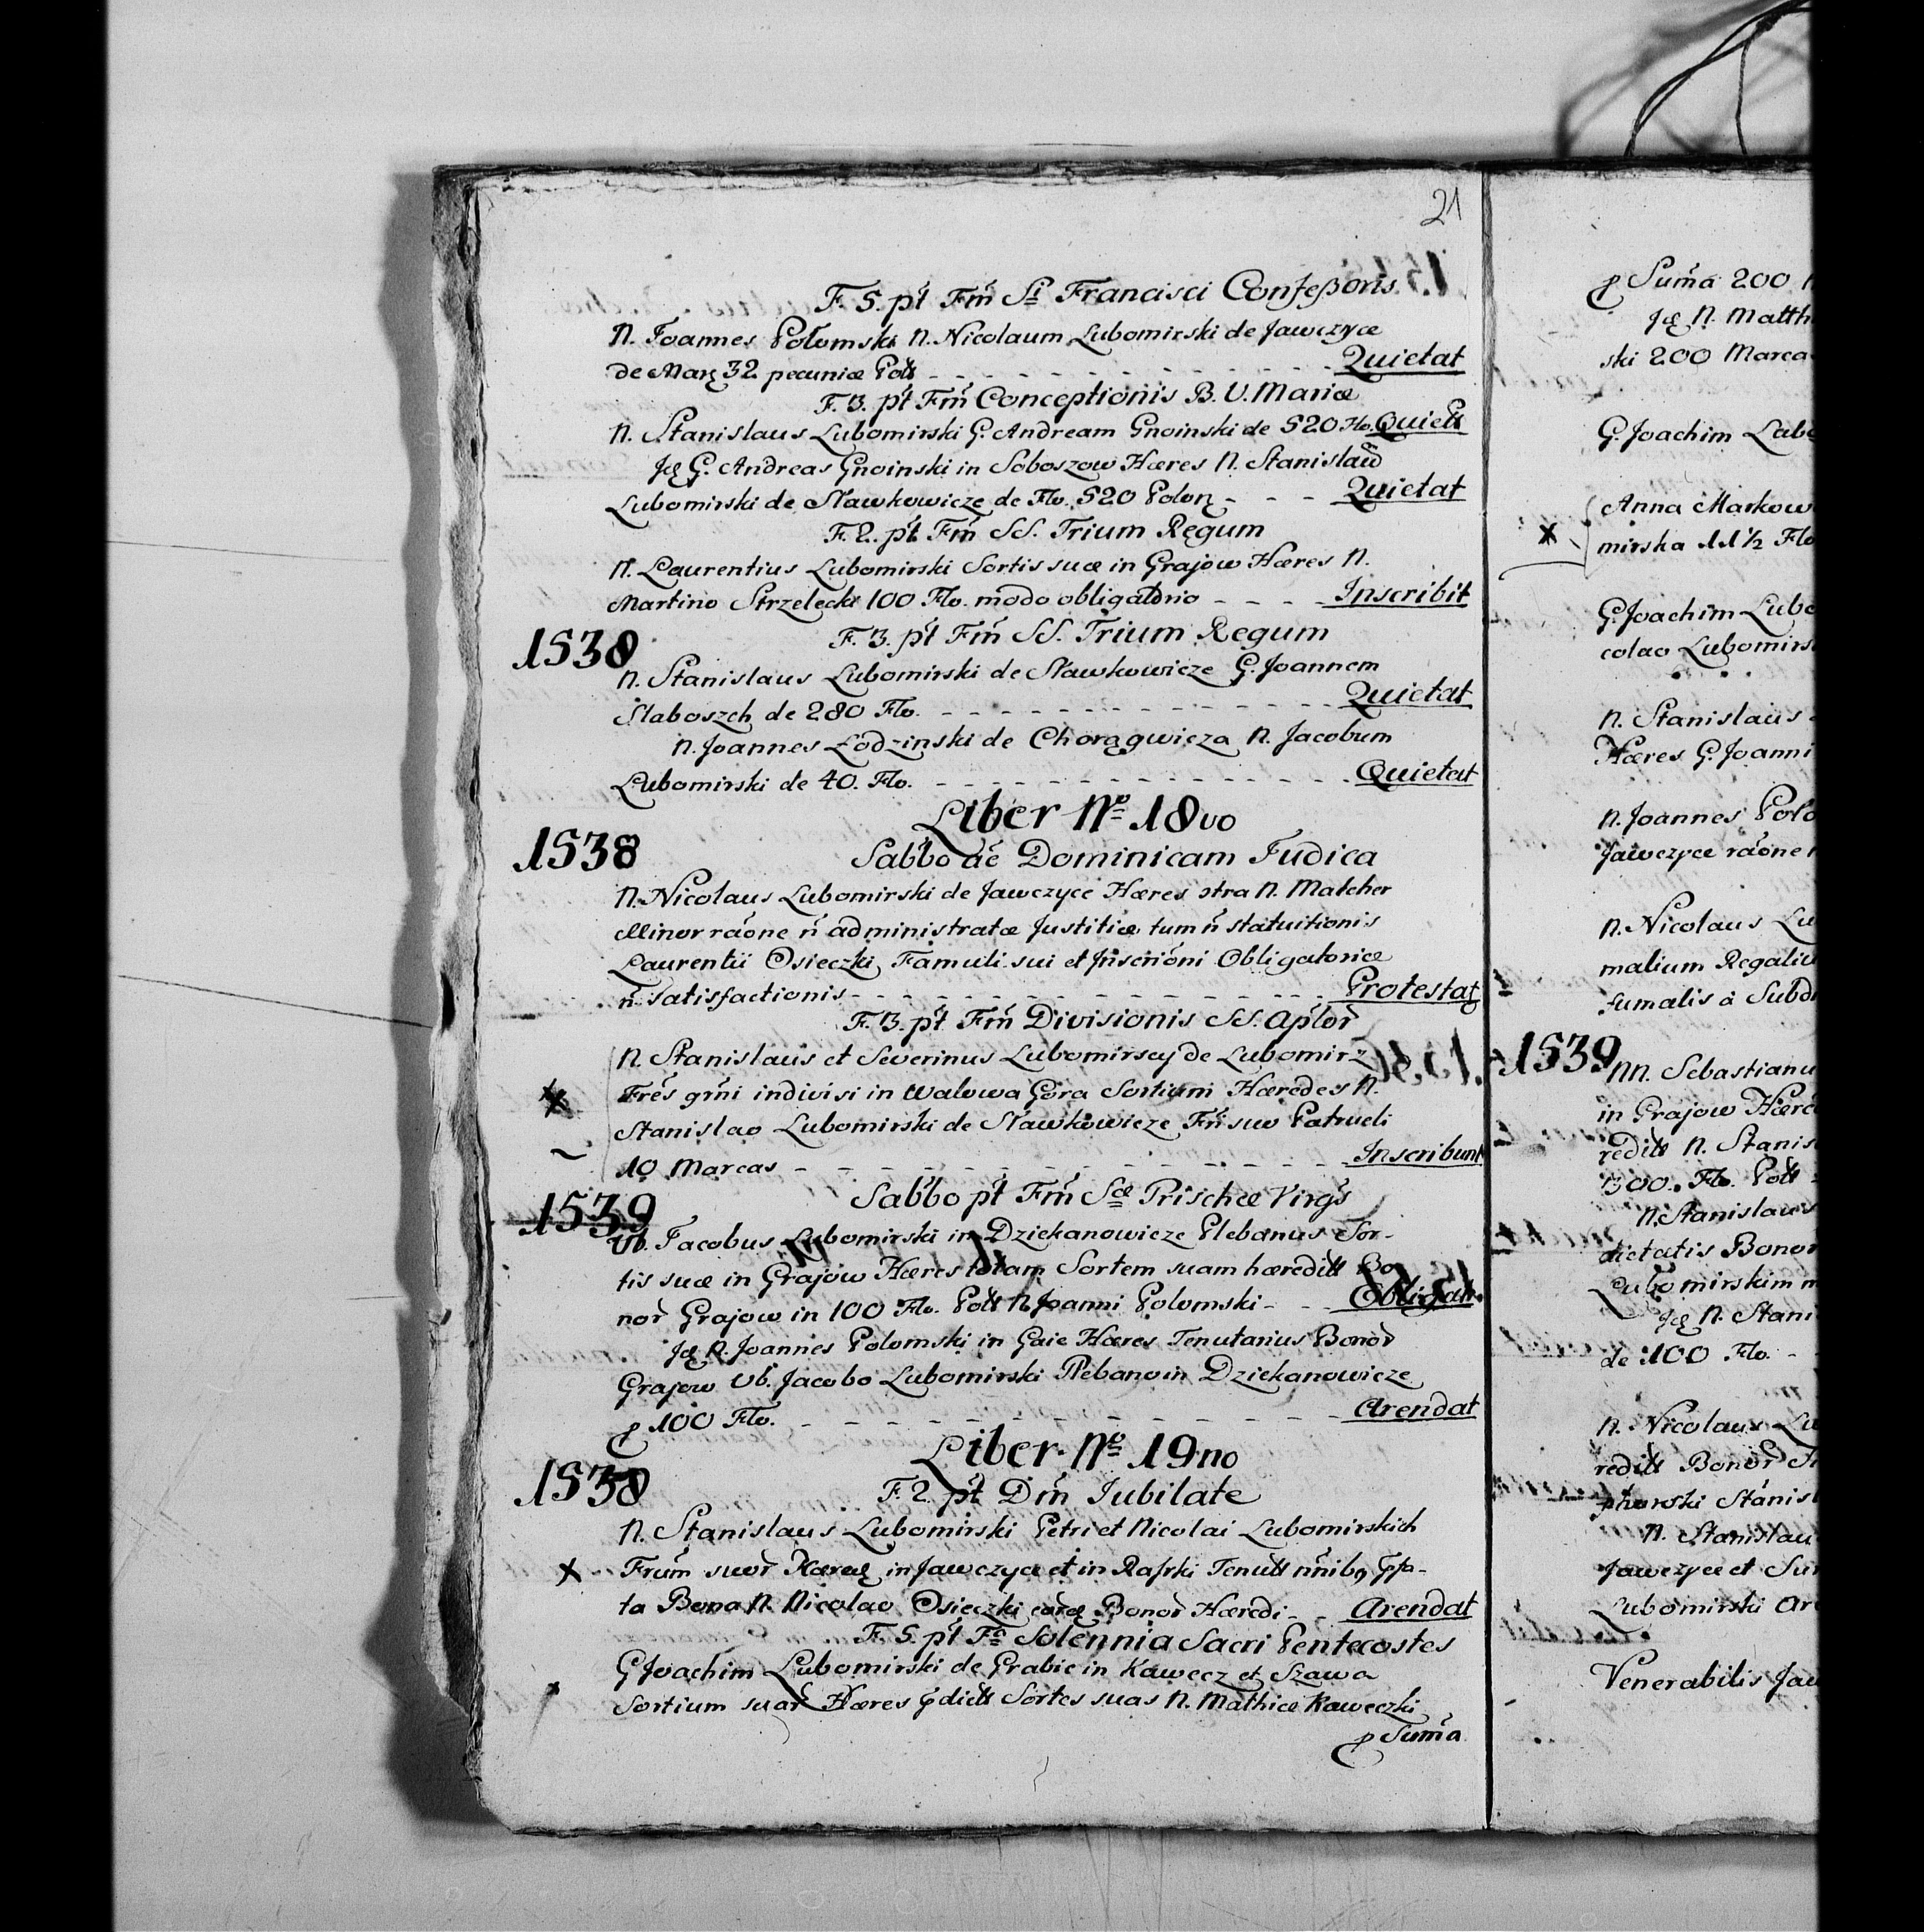 21
F. 5. pt Fm Sti Francisci Confeßoris
N. Joannes Połomski N. Nicolaum Lubomirski de Jawczyce
de Marc 32 pecuniæ Poll - - - Quietat
F. 3. pt Fm Conceptionis B. V. Mariæ
N. Stanislaus Lubomirski G. Andream Gnoinski de 520 Flo. Quiett
Id G. Andreas Gnoinski in Soboszow Hæres N. Stanislaũ
Lubomirski de Sławkowicze de Flo. 520 Polon - - - Quietat
F. 2. pt Fm SS. Trium Regum
N. Laurentius Lubomirski Sortis suæ in Grajow Hæres N.
Martino Strzelecki 100 Flo. modo obligatorio - - - - Inscribit
1538 F. 3. pt Fm SS. Trium Regum
N. Stanislaus Lubomirski de Sławkowicze G. Joannem
Slaboszch de 280 Flo. - - - Quietat
N. Joannes Łodzinski de Chorągwicza N. Jacobum
Lubomirski de 40. Flo. - - - Quietat
Liber No 18vo
1538 Sabbo ae Dominicam Judica
N. Nicolaus Lubomirski de Jawczyce Hæres ctra N. Malcher
Minor raone n administratæ Justitiæ tum n statuitionis
Laurentii Osieczki Famuli sui et Inscrioni Obligatoriæ
n satisfactionis - - - Protestat
F. 3. pt Fm Divisionis SS. Aplor
N. Stanislaus et Severinus Lubomirscy de Lubomirz
x Fres grni indivisi in Walowa Góra Sortium Hæredes N.
Stanislao Lubomirski de Sławkowicze Fri suo Patrueli
10 Marcas - - - Inscribunt
1539 Sabbo pt Fm Scæ Prischæ Virgs
Vb. Jacobus Lubomirski in Dziekanowicze Plebanus Sor-
tis suæ in Grajow Hæres totam Sortem suam hæreditt Bo
nor Grajow in 100 Flo. Poll N Joanni Polomski - - Obligat.
Id N. Joannes Polomski in Gaie Hæres Tenutarius Bonor
Grajow Vb. Jacobo Lubomirski Plebano in Dziekanowicze
p 100 Flo. - - - Arendat
Liber No 19no
1538 F. 2. pt Dm Jubilate
N. Stanislaus Lubomirski Petri et Nicolai Lubomirskich
x Frum suor Hæred in Jawczyce et in Tenutt
ta Bona N. Nicolao Osieczki Bonor Hæredi - - Arendat
F. 5. pt Fa Solennia Sacri Pentecostes
G Joachim Lubomirski de Grabie in Kawecz et Szawa
Sortium suar Hæres pdictt Sortes suas N. Mathiæ Kaweczki
p Suma
p Suma 200
Id N. Matth
ski 200 Marca
G. Joachim Lubo
Anna Markow
x mirska 11 1/2 Flo
G. Joachim Lubo
colao Lubomirs
N. Stanislaus
Hæres G. Joanni
N. Joannes Polo
Jawczyce raone
N. Nicolaus Lu
malium Regaliu
fumalis a Subd
1539 NN. Sebastianu
in Grajow Hære
reditt N. Stanis
300. Flo. Poll
N. Stanislaus
dictatis Bonor
Lubomirskim m
Id N. Stani
de 100 Flo. -
N. Nicolaus Lu
reditt Bonor
phorski Stanisl
N. Stanislau
Jawczyce et Su
Lubomirski Ar
Venerabilis Ja